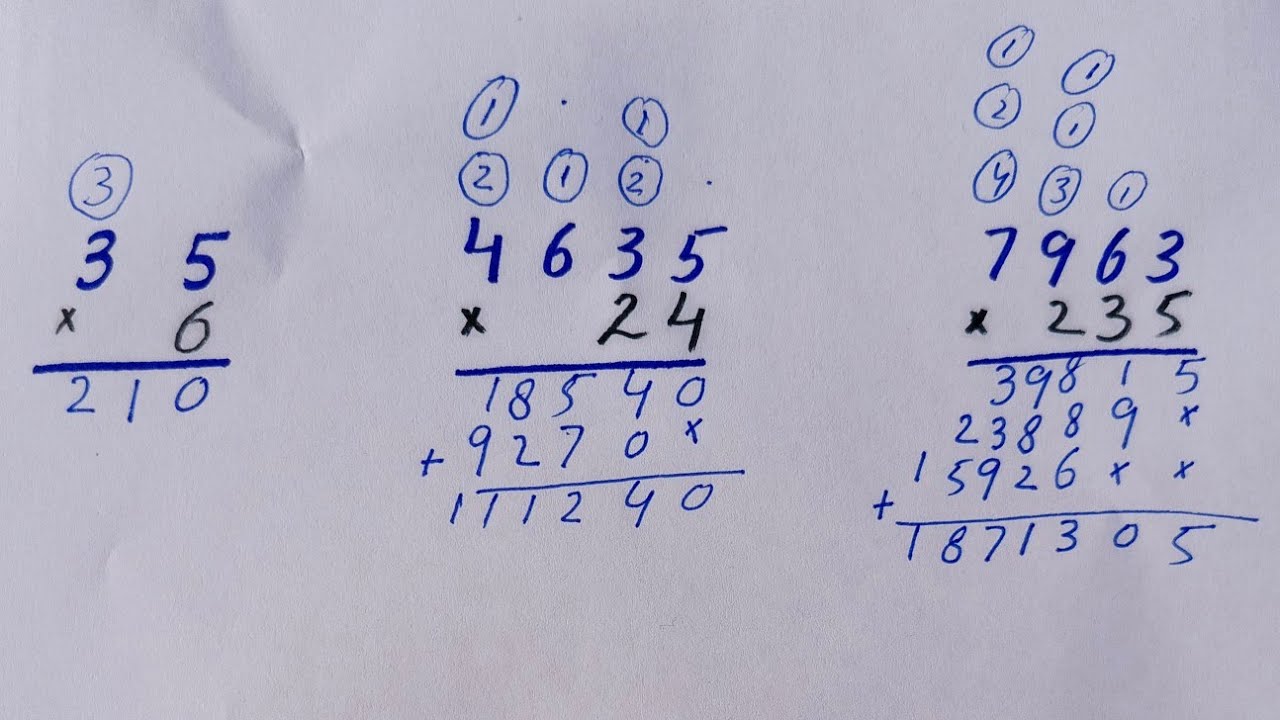 ③
3 5
× 6
2 1 0
① ①
② ① ②
4 6 3 5
× 2 4
1 8 5 4 0
+ 9 2 7 0 ×
1 1 1 2 4 0
①
② ① ①
④ ③ ①
7 9 6 3
× 2 3 5
3 9 8 1 5
2 3 8 8 9 ×
+ 1 5 9 2 6 × ×
1 8 7 1 3 0 5